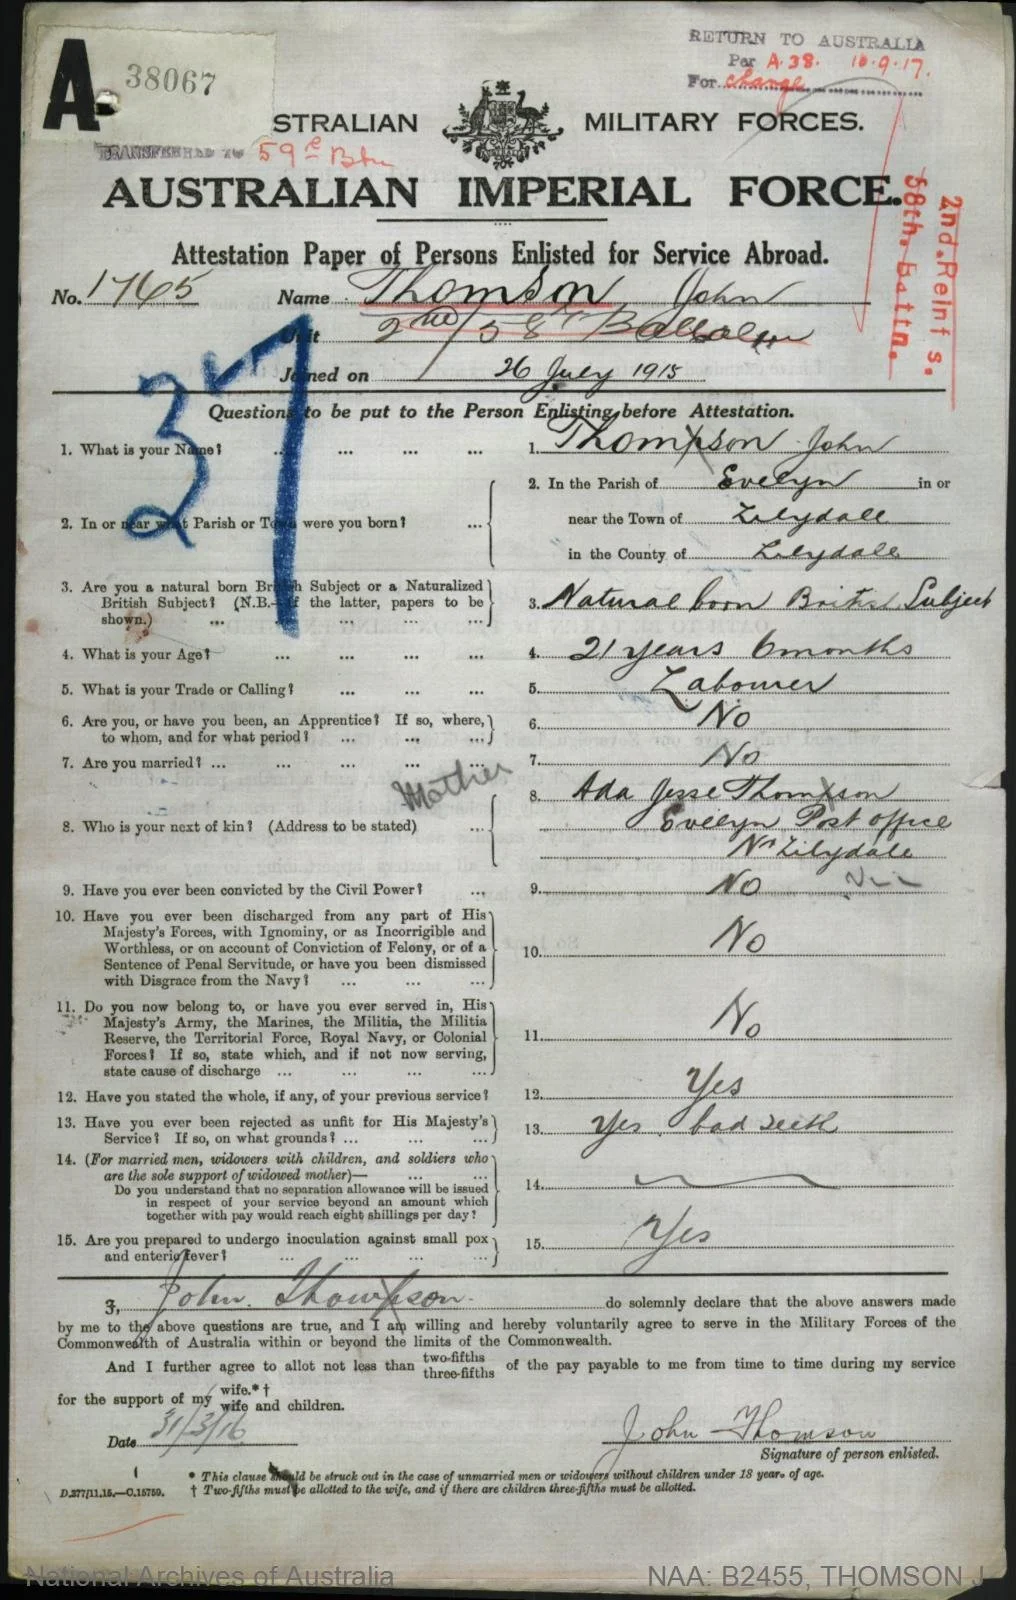 RETURN TO AUSTRALIA
Per A.38. 10.9.17.
For change
A 38067
STRALIAN MILITARY FORCES.
TRANSFERRED TO 59th Btn
AUSTRALIAN IMPERIAL FORCE.
2nd. Reinf s.
58th. Battn.
Attestation Paper of Persons Enlisted for Service Abroad.
No. 1765 Name Thomson John
Unit 2nd/58th Battalion
Joined on 26 July 1915
37
Questions to be put to the Person Enlisting before Attestation.
1. What is your Name? ... ... ... ... 1. Thompson John
2. In or near what Parish or Town were you born? ... 2. In the Parish of Evelyn in or
near the Town of Lilydale
in the County of Lilydale
3. Are you a natural born British Subject or a Naturalized
British Subject? (N.B.—If the latter, papers to be
shown.) ... ... ... ... 3. Natural born British Subject
4. What is your Age? ... ... ... ... 4. 21 years 6 months
5. What is your Trade or Calling? ... ... ... 5. Labourer
6. Are you, or have you been, an Apprentice? If so, where,
to whom, and for what period? ... ... ... 6. No
7. Are you married? ... ... ... ... ... 7. No
Mother
8. Who is your next of kin? (Address to be stated) ... 8. Ada Jesse Thompson
Evelyn Post office
Nr Lilydale
9. Have you ever been convicted by the Civil Power? ... 9. No
10. Have you ever been discharged from any part of His
Majesty's Forces, with Ignominy, or as Incorrigible and
Worthless, or on account of Conviction of Felony, or of a
Sentence of Penal Servitude, or have you been dismissed
with Disgrace from the Navy? ... ... ... 10. No
11. Do you now belong to, or have you ever served in, His
Majesty's Army, the Marines, the Militia, the Militia
Reserve, the Territorial Force, Royal Navy, or Colonial
Forces? If so, state which, and if not now serving,
state cause of discharge ... ... ... ... 11. No
12. Have you stated the whole, if any, of your previous service? 12. Yes
13. Have you ever been rejected as unfit for His Majesty's
Service? If so, on what grounds? ... ... ... 13. Yes bad teeth
14. (For married men, widowers with children, and soldiers who
are the sole support of widowed mother)— ... ...
Do you understand that no separation allowance will be issued
in respect of your service beyond an amount which
together with pay would reach eight shillings per day? 14.
15. Are you prepared to undergo inoculation against small pox
and enteric fever? ... ... ... ... 15. Yes
I, John Thompson do solemnly declare that the above answers made
by me to the above questions are true, and I am willing and hereby voluntarily agree to serve in the Military Forces of the
Commonwealth of Australia within or beyond the limits of the Commonwealth.
And I further agree to allot not less than two-fifths three-fifths of the pay payable to me from time to time during my service
for the support of my wife.*† wife and children.
Date 31/3/16
John Thomson
Signature of person enlisted.
* This clause should be struck out in the case of unmarried men or widowers without children under 18 years of age.
D.277/11.15.—C.15759. † Two-fifths must be allotted to the wife, and if there are children three-fifths must be allotted.
National Archives of Australia NAA: B2455, THOMSON J